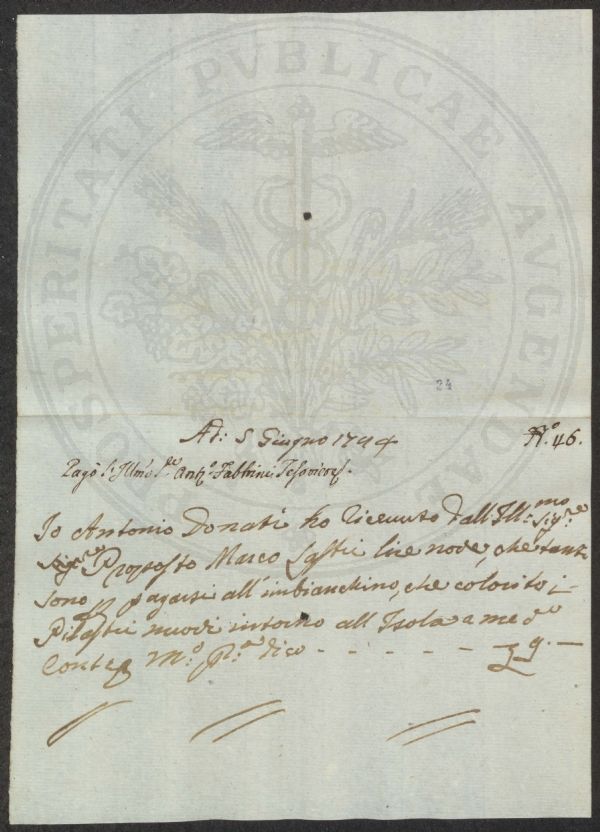 PROSPERITATI PVBLICAE AVGENDAE
24
A dì 5 Giugno 1794
N.o 46.
Pagò l'Illmo Sre Anto Fabbrini Tesoriere
Io Antonio Donati ho ricevuto dall'Ill.mo Sig.re
Sig.re Proposto Marco Lastri lire nove, che tante
sono p pagarsi all'imbianchino, che colorito i
Pilastri nuovi intorno all'Isola a me do
Conte M.o pr.a dico - - - - - £ 9. —